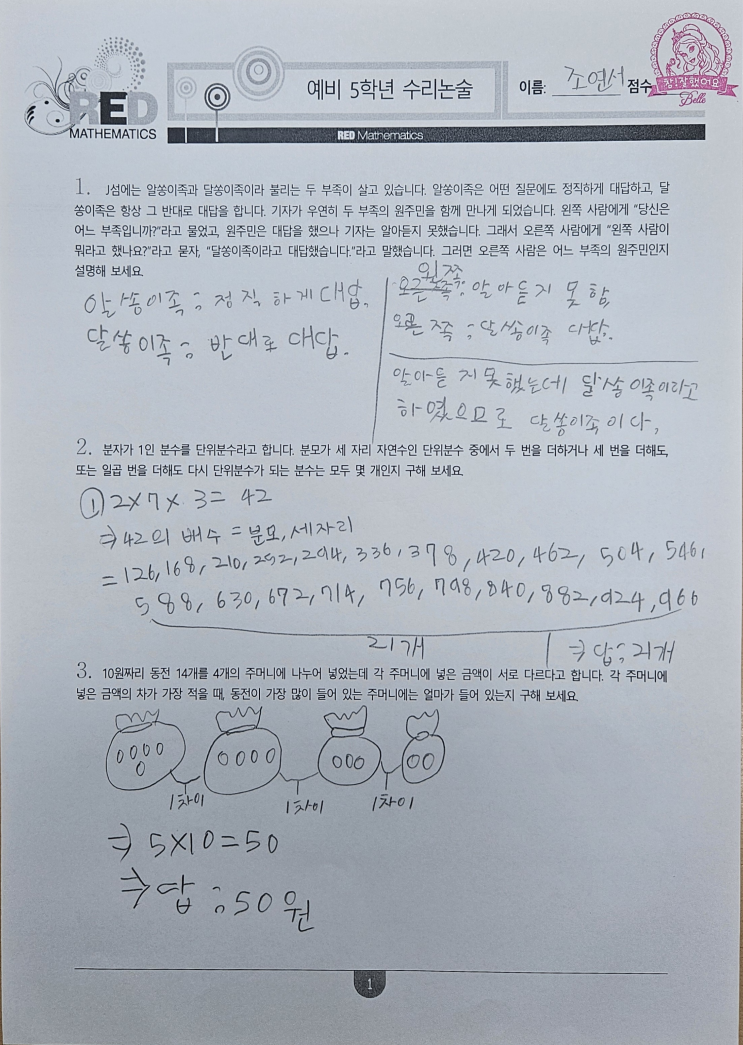 RED
MATHEMATICS
예비 5학년 수리논술
이름: 조연서 점수
참!잘했어요
Belle
RED Mathematics
1. J섬에는 알쏭이족과 달쏭이족이라 불리는 두 부족이 살고 있습니다. 알쏭이족은 어떤 질문에도 정직하게 대답하고, 달
쏭이족은 항상 그 반대로 대답을 합니다. 기자가 우연히 두 부족의 원주민을 함께 만나게 되었습니다. 왼쪽 사람에게 "당신은
어느 부족입니까?"라고 물었고, 원주민은 대답을 했으나 기자는 알아듣지 못했습니다. 그래서 오른쪽 사람에게 "왼쪽 사람이
뭐라고 했나요?"라고 묻자, "달쏭이족이라고 대답했습니다."라고 말했습니다. 그러면 오른쪽 사람은 어느 부족의 원주민인지
설명해 보세요.
알쏭이족 : 정직하게 대답.
달쏭이족 : 반대로 대답.
왼쪽
오른쪽: 알아듣지 못함
오른쪽 : 달쏭이족 대답.
알아듣지못했는데 달쏭이족이라고
하였으므로 달쏭이족이다.
2. 분자가 1인 분수를 단위분수라고 합니다. 분모가 세 자리 자연수인 단위분수 중에서 두 번을 더하거나 세 번을 더해도,
또는 일곱 번을 더해도 다시 단위분수가 되는 분수는 모두 몇 개인지 구해 보세요.
① 2×7×3=42
⇒42의 배수 = 분모, 세자리
=126,168,210,252,294,336,378,420,462,504,546,
588,630,672,714,756,798,840,882,924,966
21개
⇒답: 21개
3. 10원짜리 동전 14개를 4개의 주머니에 나누어 넣었는데 각 주머니에 넣은 금액이 서로 다르다고 합니다. 각 주머니에
넣은 금액의 차가 가장 적을 때, 동전이 가장 많이 들어 있는 주머니에는 얼마가 들어 있는지 구해 보세요.
1차이 1차이 1차이
⇒ 5×10=50
⇒답 : 50원
1